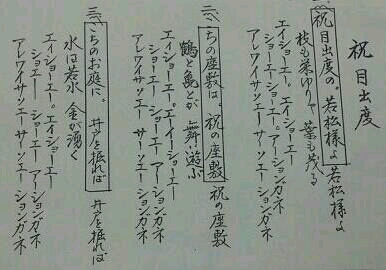 祝目出度
一、祝目出度の。若松様よ 若松様よ
枝も栄ゆりて 葉も茂る
エイショーエー。エイショーエー
ショーエー ショーエー アーションガネ
アレワイサソエー サーソエー ションガネ
二、こちの座敷は。祝の座敷 祝の座敷
鶴と亀とが 舞い遊ぶ
エイショーエー。エイーショーエー
ショーエー ショーエー アーションガネ
アレワイサソエー サーソエー ションガネ
三、こちのお庭に。井戸を掘れば 井戸を掘れば
水は若水 金が湧く
エイショーエー。エイショーエー
ショーエー ショーエー アーションガネ
アレワイサソエー サーソエー ションガネ